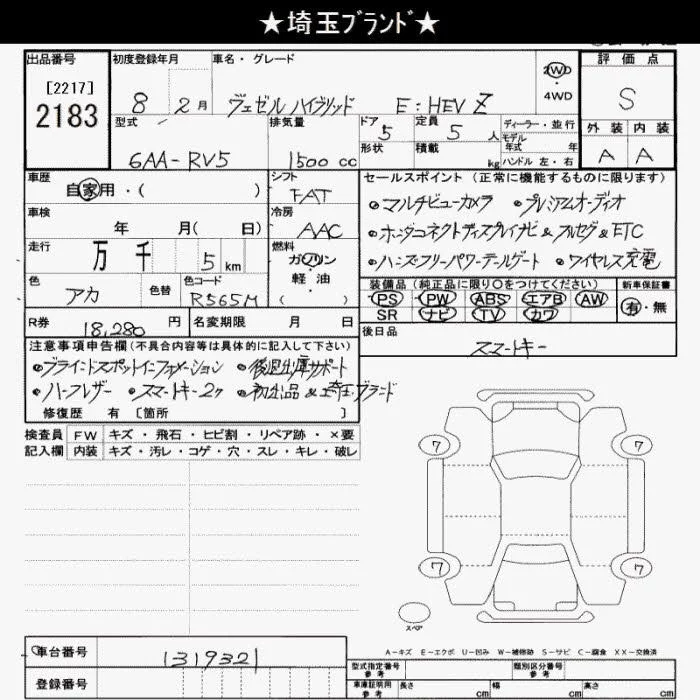 ★埼玉ﾌﾞﾗﾝﾄﾞ★
出品番号 初度登録年月 車名・グレード 2WD・4WD 評価点
[2217]
2183 8 2月 ヴェゼル ハイブリッド E:HEV Z S
型式 排気量 ドア 定員 ディーラー・並行 外装 内装
6AA-RV5 1500cc 5 5人 モデル年式 年 A A
形状 積載 kg ハンドル 左・右
車歴 自家用・( ) シフト FAT セールスポイント (正常に機能するものに限ります)
車検 年 月( 日) 冷房 AAC
•マルチビューカメラ •プレミアムオーディオ
•ホンダコネクトディスプレイナビ&フルセグ&ETC
•ハンズフリーパワーテールゲート •ワイヤレス充電
走行 万 千 5km 燃料 ガソリン・軽油 ( )
色 アカ 色替 色コード R565M
装備品 (純正品に限り○をつけてください) 新車保証書
PS PW ABS エアB AW 有・無
SR ナビ TV カワ
R券 18,280円 名変期限 月 日 後日品
スマートキー
注意事項申告欄(不具合内容等は具体的に記入して下さい)
•ブラインドスポットインフォメーション •後退出庫サポート
•ハーフレザー •スマートキー2ケ •初出品&埼玉ブランド
修復歴 有 [箇所 ]
検査員 FW キズ・飛石・ヒビ割・リペア跡・×要
記入欄 内装 キズ・汚レ・コゲ・穴・スレ・キレ・破レ
7 7
7 7
スペア
A-キズ E-エクボ U-凹み W-補修跡 S-サビ C-腐食 XX-交換済
車台番号 131932
登録番号
型式指定番号 参考 類別区分番号 参考
車庫証明用 参考 長さ cm 幅 cm 高さ cm